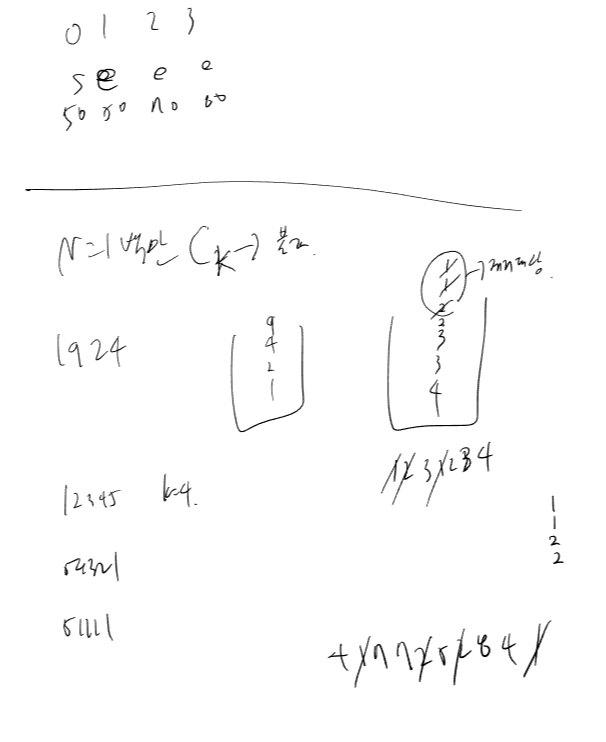 0 1 2 3
s e e e
50 50 no no
N=1백만 (k→) 불가.
1924
9
4
2
1
1
1
2
2
3
3
4
1231234
12345 k=4.
54321
51111
1
1
2
2
4177252841